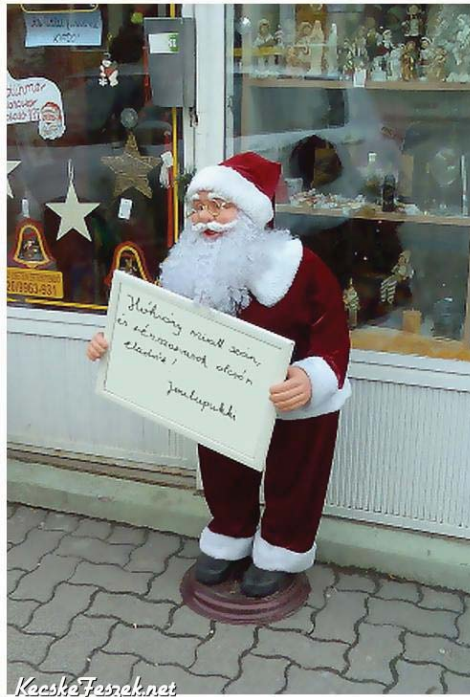 KIADÓ!
20/9963-931
Hóhiány miatt szán,
és rénszarvasok olcsón
eladók!
Joulupukki
KecskeFeszek.net